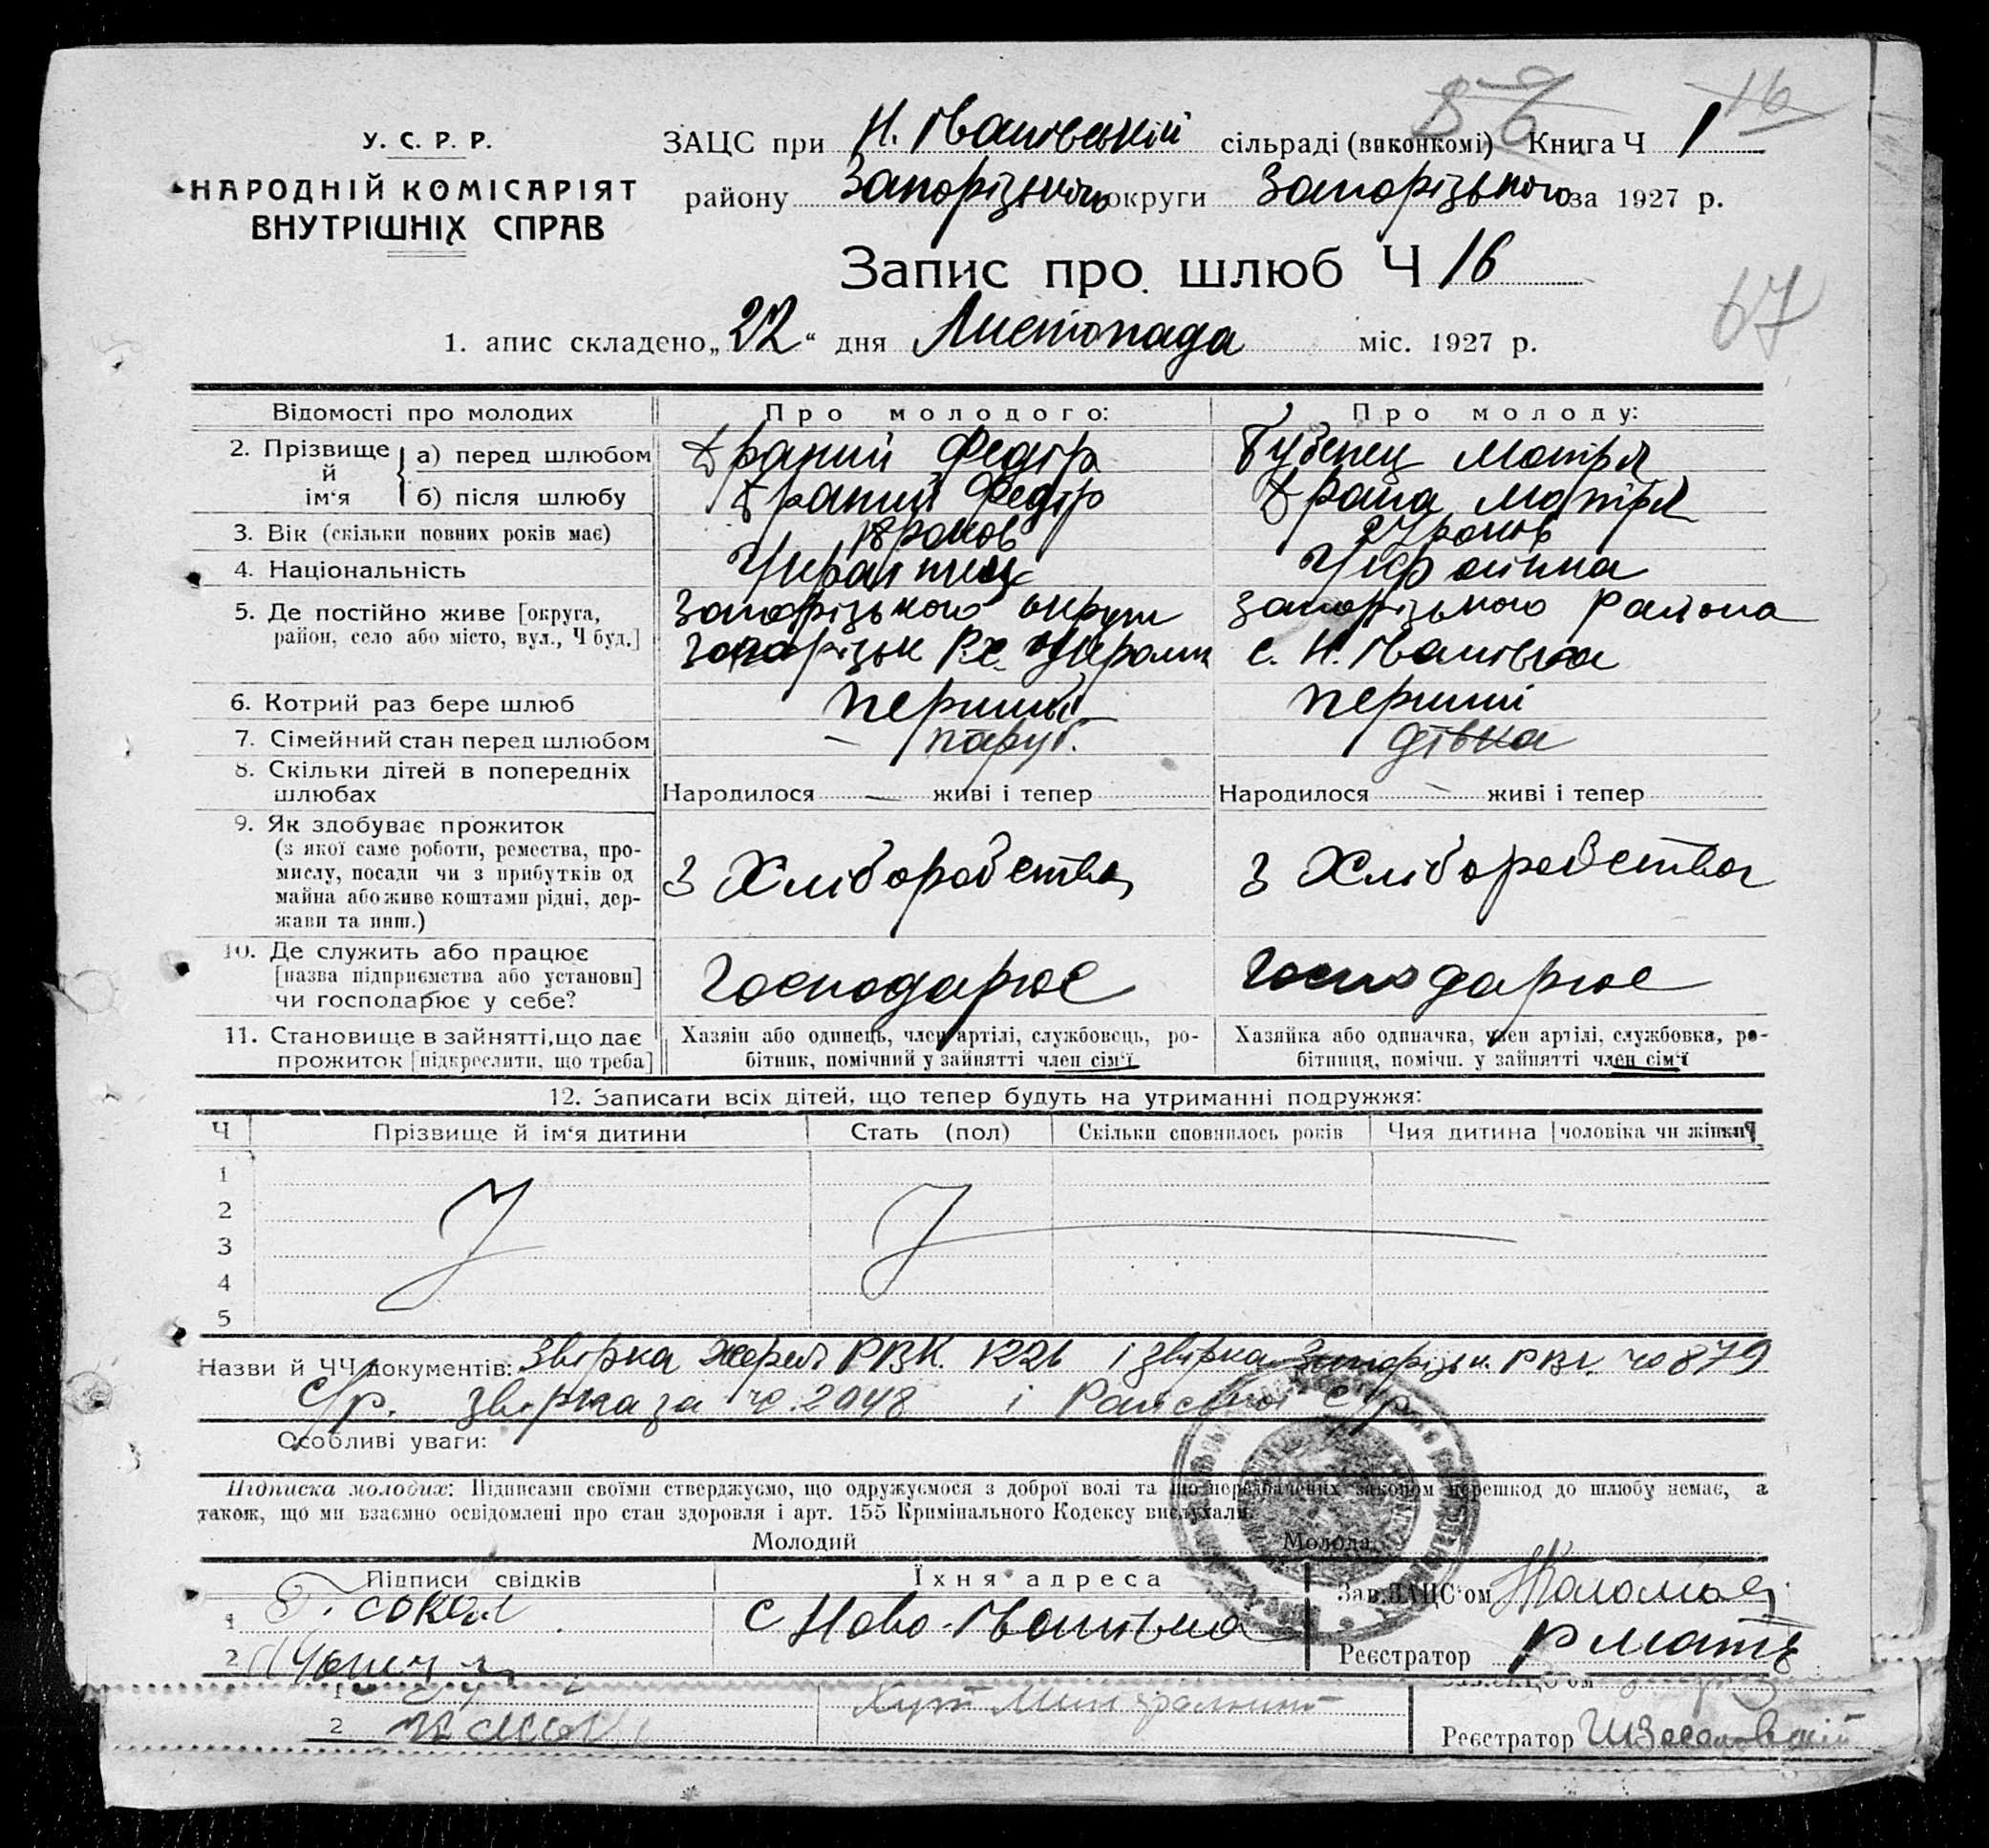 У. С. Р. Р.
НАРОДНІЙ КОМІСАРІЯТ
ВНУТРІШНІХ СПРАВ
16
ЗАЦС при Н. Іванівській сільраді (виконкомі) Книга Ч 1
району Запорізького округи Запорізького за 1927 р.
Запис про шлюб Ч 16
67
1. апис складено „22“ дня Листопада міс. 1927 р.
Відомості про молодих Про молодого: Про молоду:
2. Прізвище й ім‘я а) перед шлюбом Драний Федір Губенец Мотря
б) після шлюбу Драний Федір Драна Мотря
3. Вік (скільки повних років має) 18 роков 27 роков
4. Національність Украінец Украінка
5. Де постійно живе [округа, Запорізького округи Запорізького района
район, село або місто, вул., Ч буд.] с. Н. Іванівка
6. Котрий раз бере шлюб перший перший
7. Сімейний стан перед шлюбом — паруб. дівка
8. Скільки дітей в попередніх
шлюбах Народилося — живі і тепер Народилося — живі і тепер
9. Як здобуває прожиток
(з якої саме роботи, ремества, про-
мислу, посади чи з прибутків од з Хліборобства з Хліборобства
майна або живе коштами рідні, дер-
жави та инш.)
10. Де служить або працює
[назва підприємства або установи] Господарює Господарює
чи господарює у себе?
11. Становище в зайнятті, що дає Хазяїн або одинець, член артілі, службовець, ро- Хазяйка або одиначка, член артілі, службовка, ро-
прожиток [підкреслити, що треба] бітник, помічний у зайнятті член сім‘ї бітниця, помічн. у зайнятті член сім‘ї
12. Записати всіх дітей, що тепер будуть на утриманні подружжя:
Ч Прізвище й ім‘я дитини Стать (пол) Скільки сповнилось років Чия дитина [чоловіка чи жінки]
1
2
3
4
5
Назви й ЧЧ документів: Звірка РВК. 1226 і звірка Запорізьк. РВК. чо 879
С/р. звірка за чо. 2948 і с/р
Особливі уваги:
Підписка молодих: Підписами своїми стверджуємо, що одружуємося з доброї волі та що передбачених законом перешкод до шлюбу немає, а
також, що ми взаємно освідомлені про стан здоровля і арт. 155 Кримінального Кодексу вислухали.
Молодий Молода
Підписи свідків Їхня адреса Зав. ЗАЦС‘ом
1 Г. Сокол с Ново-Іванівка
2 Реєстратор
1
2 Хут Реєстратор